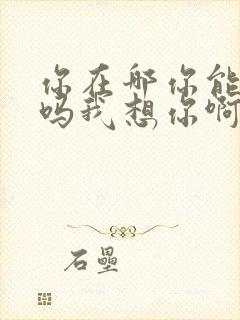 你在哪你能
吗我想你啊
石壘